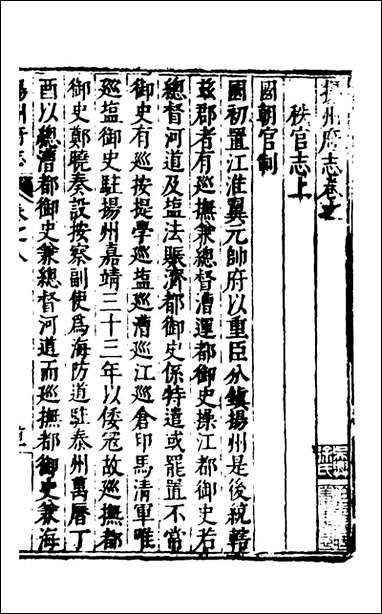 揚州府志卷之
秩官志上
國朝官制
國初置江淮翼元帥府以重臣分鎮揚州是後統轄
兹郡者有巡撫兼總督漕運都御史操江都御史若
總督河道及塩法賑濟都御史係特遣或罷置不常
御史有巡按提學巡塩巡漕巡江巡倉印馬清軍唯
巡塩御史駐揚州嘉靖三十三年以倭冦故巡撫都
御史鄭曉奏設按察副使爲海防道駐泰州萬曆丁
酉以總漕都御史兼總督河道而巡撫都御史兼海
揚州府志